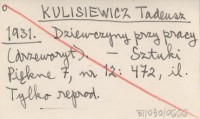 KULISIEWICZ Tadeusz
1931. Dziewczyny przy pracy
(drzeworyt). – Sztuki
Piękne 7, nr 12: 472, il.
Tylko reprod.